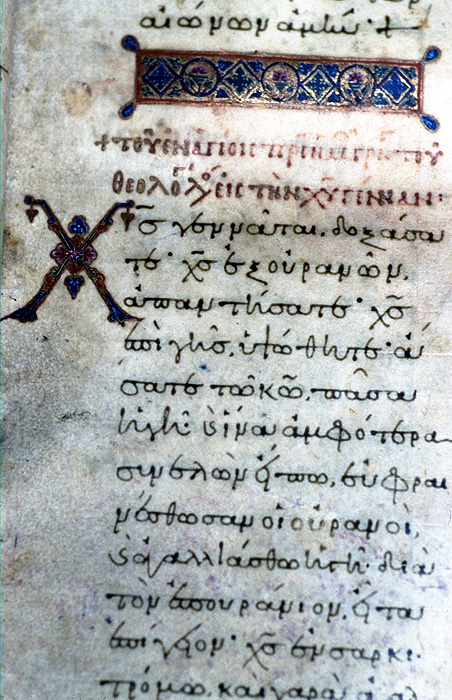 αἰώνων ἀμήν· +
+ τοῦ ἐν ἁγίοις πρς ἡμ γρη τοῦ
θεολό λό εἰς τὴν χυ γένναν:
Χς γεννᾶται. δοξάσα
τε· χς ἐξ οὐρανῶν.
ἀπαντήσατε· χς
ἐπὶ γῆς, ὑψώθητε· ἄ
σατε τῶ κῶ, πᾶσα
ἡ γῆ· καὶ ἵνα ἀμφότερα
συνελὼν εἴπω, εὐφραι
νέσθωσαν οἱ οὐρανοὶ,
καὶ ἀγαλλιάσθω ἡ γῆ· διὰ
τὸν ἐπουράνιον, εἶτα
ἐπίγειον· χς ἐν σαρκὶ.
τρόμω, καὶ χαρᾶ